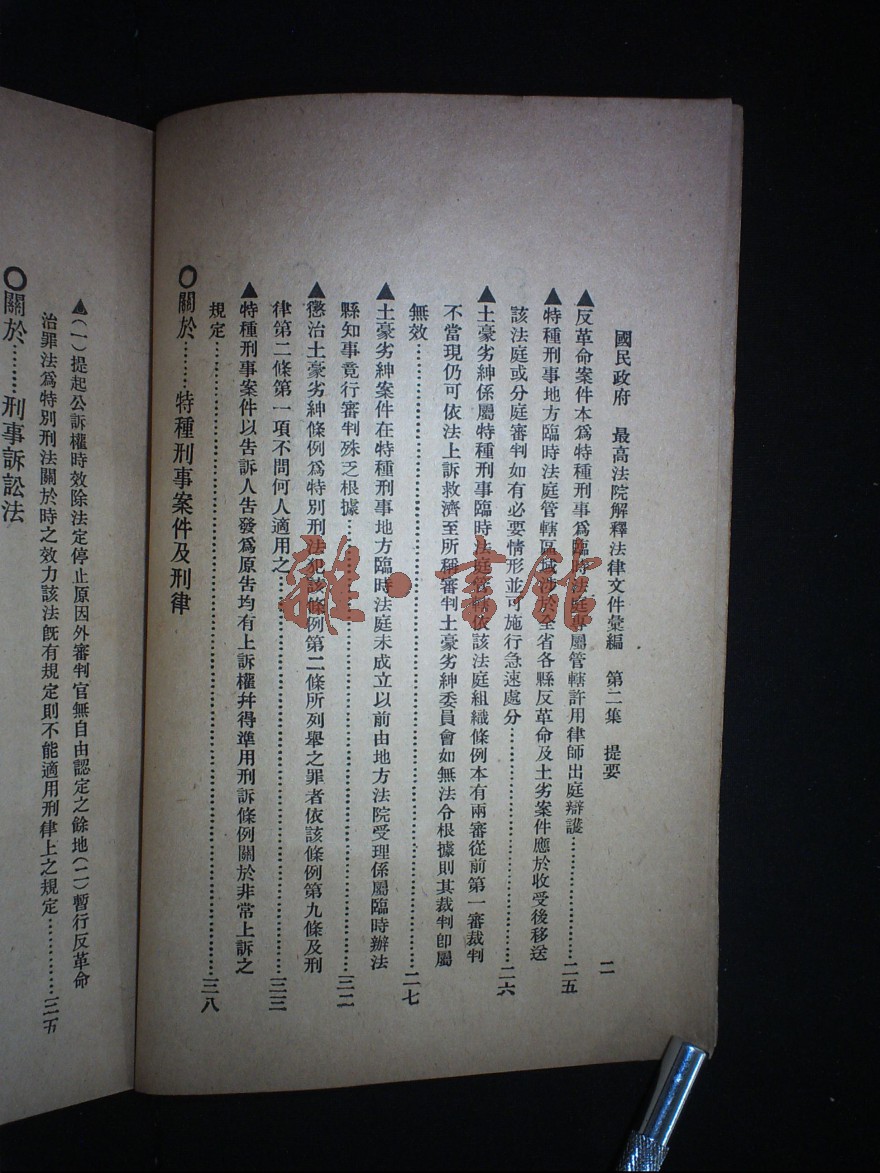 國民政府　最高法院解釋法律文件彙編　第二集　提要
二
▲反革命案件本爲特種刑事爲臨時法庭專屬管轄許用律師出庭辯護…………二五
▲特種刑事地方臨時法庭管轄區域涉於全省各縣反革命及土劣案件應於收受後移送
該法庭或分庭審判如有必要情形並可施行急速處分…………二六
▲土豪劣紳係屬特種刑事臨時法庭管轄依該法庭組織條例本有兩審從前第一審裁判
不當現仍可依法上訴救濟至所稱審判土豪劣紳委員會如無法令根據則其裁判卽屬
無效…………二七
▲土豪劣紳案件在特種刑事地方臨時法庭未成立以前由地方法院受理係屬臨時辦法
縣知事竟行審判殊乏根據…………三二
▲懲治土豪劣紳條例爲特別刑法犯該條例第二條所列舉之罪者依該條例第九條及刑
律第二條第一項不問何人適用之…………三三
▲特種刑事案件以告訴人告發爲原告均有上訴權幷得準用刑訴條例關於非常上訴之
規定…………三八
〇關於………特種刑事案件及刑律
▲(一)提起公訴權時效除法定停止原因外審判官無自由認定之餘地(二)暫行反革命
治罪法爲特別刑法關於時之效力該法旣有規定則不能適用刑律上之規定…………三五
〇關於………刑事訴訟法
雜·書館